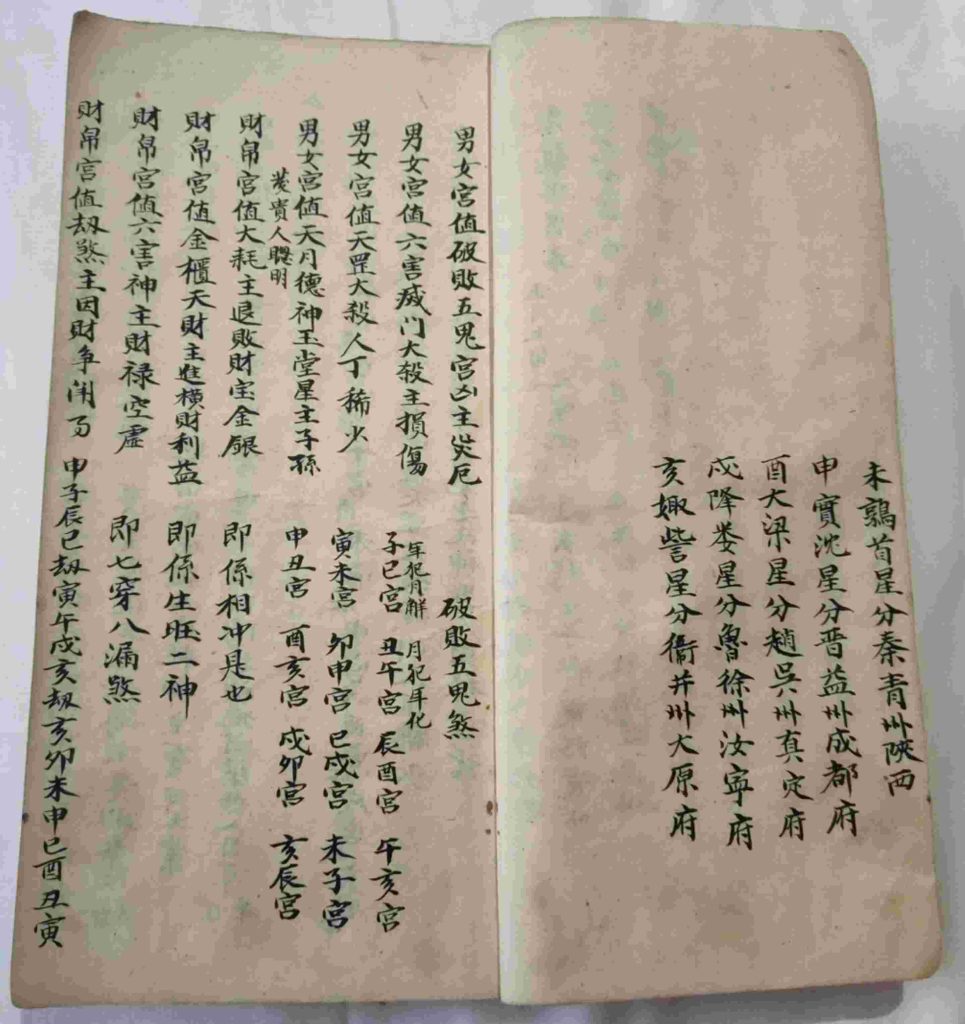 未鶉首星分秦青州陝西
申實沈星分晋益州成都府
酉大梁星分趙吳州真定府
戍降娄星分魯徐州汝寧府
亥娵訾星分衞并州大原府
男女宫值破敗五鬼宫凶主災厄
破敗五鬼煞
男女宫值六害滅门大殺主損傷
年犯月解 月犯年化
子巳宫 丑午宫 辰酉宫 午亥宫
男女宫值天罡大殺人丁稀少
寅未宫 卯申宫 巳戍宫 未子宫
男女宫值天月德神玉堂星主子孫
發貴人聰明
申丑宫 酉亥宫 戍卯宫 亥辰宫
財帛宫值大耗主退敗財宝金銀
即係相冲是也
財帛宫值金櫃天財主進横財利益
即係生旺二神
財帛宫值六害神主財禄空虛
即七穿八漏煞
財帛宫值劫煞主因財争闹
申子辰巳劫寅午戍亥劫亥卯未申巳酉丑寅